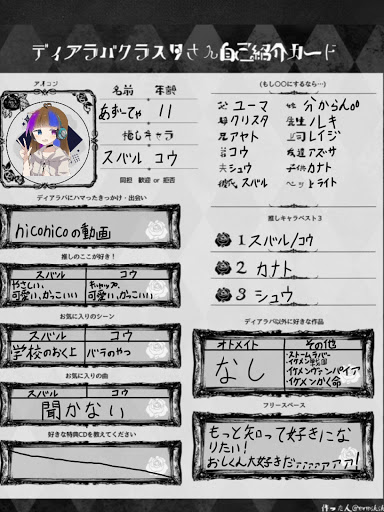 ディアラバクラスタさん自己紹介カード
アイコン
名前 年齢
あずーてゃ 11
推しキャラ
スバル コウ
同担 歓迎 or 拒否
(もし○○にするなら…)
父 ユーマ 姉 分からん。
母 クリスタ 先生 ルキ
兄 アヤト 上司 レイジ
弟 コウ 友達 アズサ
夫 シュウ 子供 カナト
彼氏 スバル ペット ライト
ディアラバにハマったきっかけ・出会い
niconicoの動画
推しのここが好き!
スバル コウ
やさしい、 ギャップ、
可愛い、かっこいい 可愛い、かっこいい
お気に入りのシーン
スバル コウ
学校のおく上 バラのやつ
お気に入りの曲
スバル コウ
聞かない
好きな特典CDを教えてください
推しキャラベスト3
1 スバル/コウ
2 カナト
3 シュウ
ディアラバ以外に好きな作品
オトメイト その他
なし
・ストームラバー
・イケメン戦国
・イケメンヴァンパイア
・イケメンかく命
フリースペース
もっと知って好きにな
りたい!
おしくん大好きだ